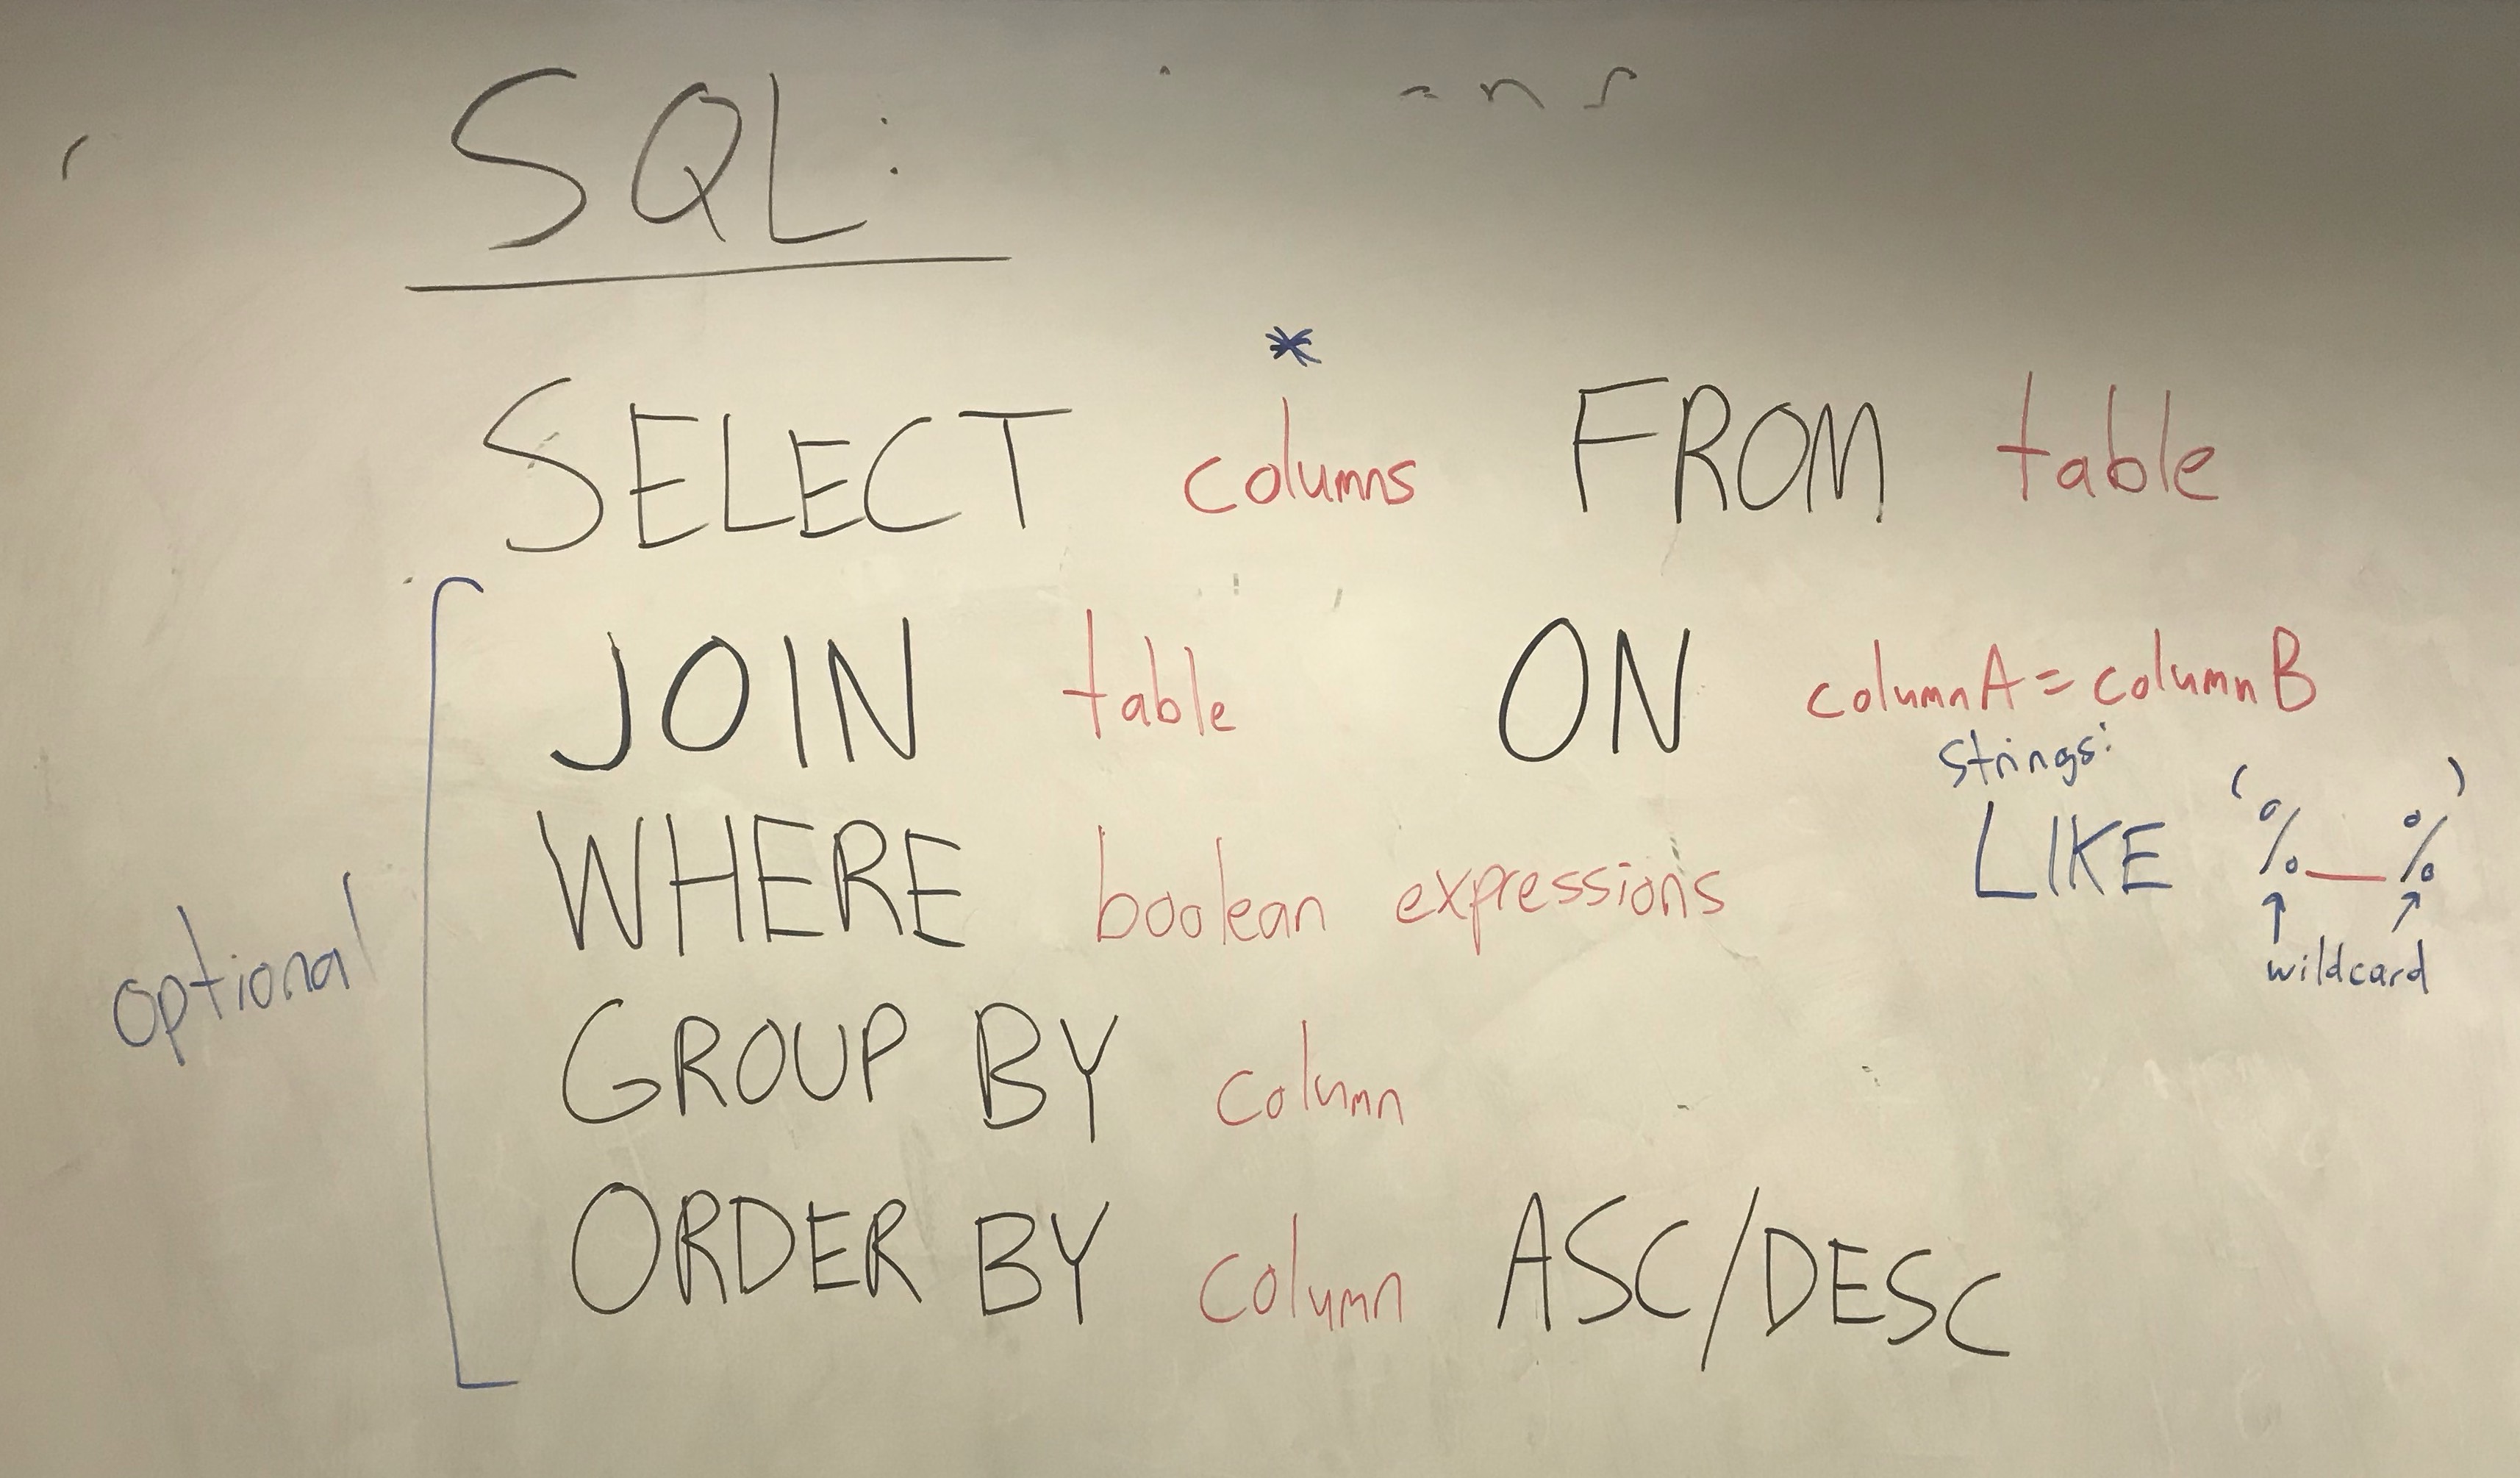 SQL:
*
SELECT columns FROM table
JOIN table ON columnA = columnB
Strings:
WHERE boolean expressions LIKE '%__%'
wildcard
optional
GROUP BY column
ORDER BY column ASC/DESC